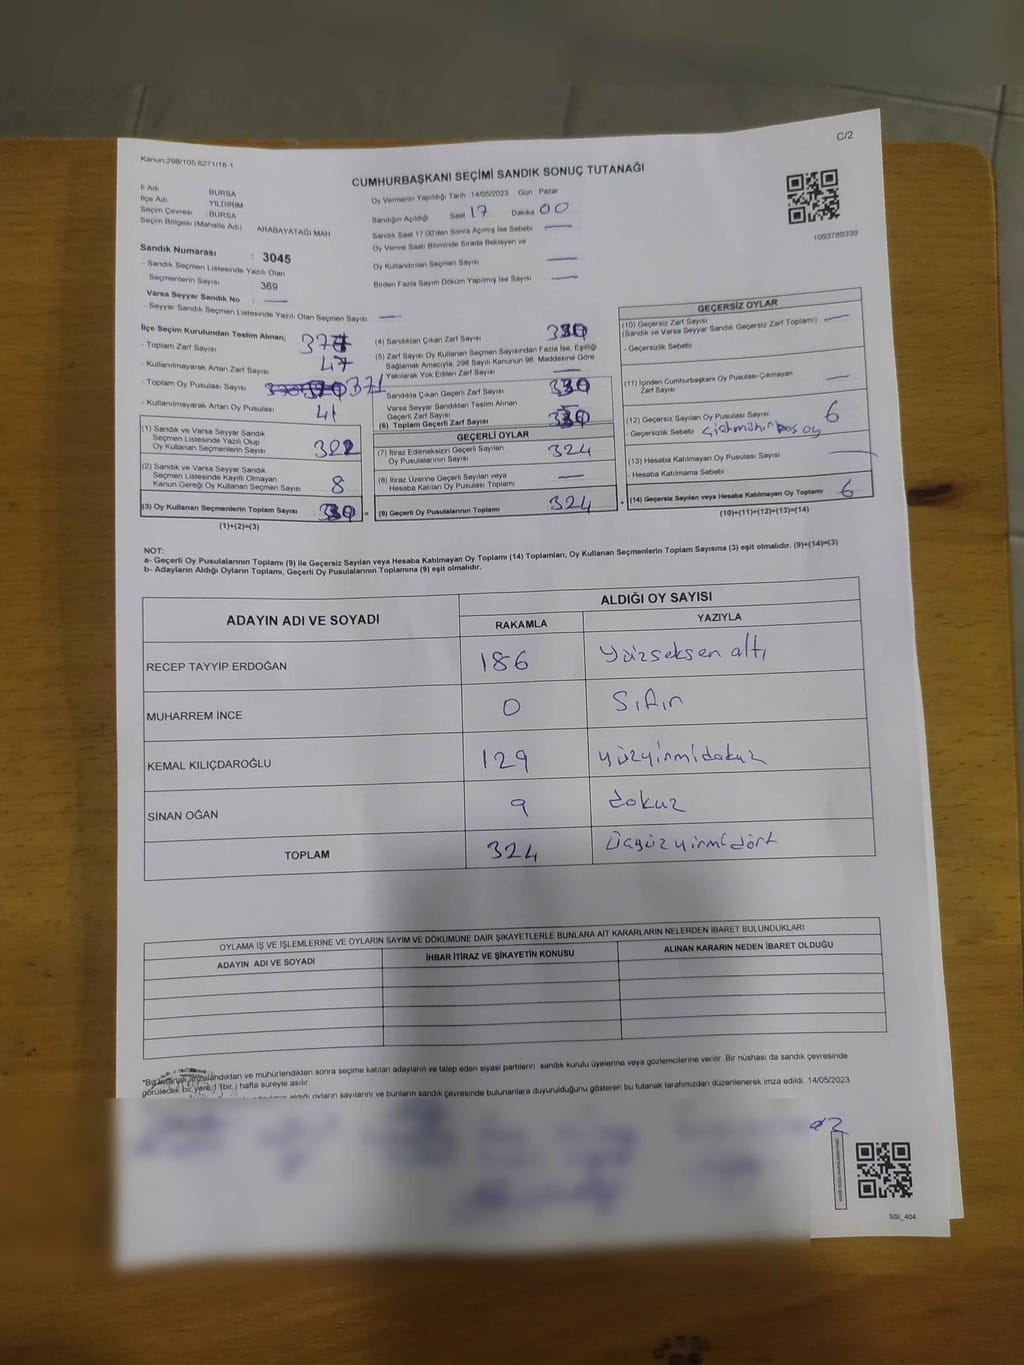 C/2
Kanun:298/105,6271/18-1
CUMHURBAŞKANI SEÇİMİ SANDIK SONUÇ TUTANAĞI
İl Adı BURSA
İlçe Adı YILDIRIM
Seçim Çevresi : BURSA
Seçim Bölgesi (Mahalle Adı) ARABAYATAĞI MAH.
Oy Vermenin Yapıldığı Tarih 14/05/2023 Gün Pazar
Sandığın Açıldığı Saat 17 Dakika 00
Sandık Saat 17:00'den Sonra Açılmış İse Sebebi —
Oy Verme Saati Bitiminde Sırada Bekleyen ve
Oy Kullandırılan Seçmen Sayısı —
Birden Fazla Sayım Döküm Yapılmış İse Sayısı —
1093789339
Sandık Numarası : 3045
- Sandık Seçmen Listesinde Yazılı Olan
Seçmenlerin Sayısı : 369
Varsa Seyyar Sandık No : —
- Seyyar Sandık Seçmen Listesinde Yazılı Olan Seçmen Sayısı —
İlçe Seçim Kurulundan Teslim Alınan;
- Toplam Zarf Sayısı
- Kullanılmayarak Artan Zarf Sayısı 47
- Toplam Oy Pusulası Sayısı 371
- Kullanılmayarak Artan Oy Pusulası 41
(1) Sandık ve Varsa Seyyar Sandık
Seçmen Listesinde Yazılı Olup
Oy Kullanan Seçmenlerin Sayısı 322
(2) Sandık ve Varsa Seyyar Sandık
Seçmen Listesinde Kayıtlı Olmayan
Kanun Gereği Oy Kullanan Seçmen Sayısı 8
(3) Oy Kullanan Seçmenlerin Toplam Sayısı 330 =
(1)+(2)=(3)
(4) Sandıktan Çıkan Zarf Sayısı 330
(5) Zarf Sayısı Oy Kullanan Seçmen Sayısından Fazla İse, Eşitliği
Sağlamak Amacıyla, 298 Sayılı Kanunun 98. Maddesine Göre
Yakılarak Yok Edilen Zarf Sayısı —
Sandıkta Çıkan Geçerli Zarf Sayısı 330
Varsa Seyyar Sandıktan Teslim Alınan
Geçerli Zarf Sayısı
(6) Toplam Geçerli Zarf Sayısı 330
GEÇERLİ OYLAR
(7) İtiraz Edilmeksizin Geçerli Sayılan
Oy Pusulalarının Sayısı 324
(8) İtiraz Üzerine Geçerli Sayılan veya
Hesaba Katılan Oy Pusulası Toplamı —
(9) Geçerli Oy Pusulalarının Toplamı 324 +
GEÇERSİZ OYLAR
(10) Geçersiz Zarf Sayısı
(Sandık ve Varsa Seyyar Sandık Geçersiz Zarf Toplamı) —
- Geçersizlik Sebebi
(11) İçinden Cumhurbaşkanı Oy Pusulası Çıkmayan
Zarf Sayısı —
(12) Geçersiz Sayılan Oy Pusulası Sayısı 6
- Geçersizlik Sebebi boş oy
(13) Hesaba Katılmayan Oy Pusulası Sayısı —
- Hesaba Katılmama Sebebi
(14) Geçersiz Sayılan veya Hesaba Katılmayan Oy Toplamı 6
(10)+(11)+(12)+(13)=(14)
NOT:
a- Geçerli Oy Pusulalarının Toplamı (9) ile Geçersiz Sayılan veya Hesaba Katılmayan Oy Toplamı (14) Toplamları, Oy Kullanan Seçmenlerin Toplam Sayısına (3) eşit olmalıdır. (9)+(14)=(3)
b- Adayların Aldığı Oyların Toplamı, Geçerli Oy Pusulalarının Toplamına (9) eşit olmalıdır.
ADAYIN ADI VE SOYADI ALDIĞI OY SAYISI
RAKAMLA YAZIYLA
RECEP TAYYİP ERDOĞAN 186 Yüzseksen altı
MUHARREM İNCE 0 Sıfır
KEMAL KILIÇDAROĞLU 129 yüzyirmidokuz
SİNAN OĞAN 9 dokuz
TOPLAM 324 Üçyüzyirmidört
OYLAMA İŞ VE İŞLEMLERİNE VE OYLARIN SAYIM VE DÖKÜMÜNE DAİR ŞİKAYETLERLE BUNLARA AİT KARARLARIN NELERDEN İBARET BULUNDUKLARI
ADAYIN ADI VE SOYADI İHBAR İTİRAZ VE ŞİKAYETİN KONUSU ALINAN KARARIN NEDEN İBARET OLDUĞU
*Bu tutanak imzalandıktan ve mühürlendikten sonra seçime katılan adayların ve talep eden siyasi partilerin sandık kurulu üyelerine veya gözlemcilerine verilir. Bir nüshası da sandık çevresinde
görülecek bir yere 1 (bir) hafta süreyle asılır
aldığı oyların sayılarını ve bunların sandık çevresinde bulunanlara duyurulduğunu gösteren bu tutanak tarafımızdan düzenlenerek imza edildi. 14/05/2023
SSİ_404